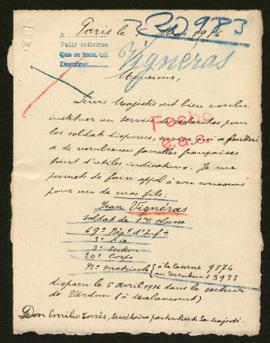 Paris le 1916
20983
A
Pedir informes
Que se hace así
Devolver
Vignéras
Monsieur,
Leurs Majestés ont bien voulu
instituer un service de recherches pour
les soldats disparus, service qui a fourni
à de nombreuses familles françaises
tant d'utiles indications. Je me
permets de faire appel à vos
pour un de mes fils.
Fecho
Jean Vignéras
soldat de 1ère classe
69e Rég. d'Inf.ie
3e Section
20e Corps
No matricule à la caserne 9874
au recrutement 3933
disparu le 5 avril 1916 dans le secteur
de Verdun (à Malancourt)
Don Emilio Torrès, secrétaire particulier de sa majesté